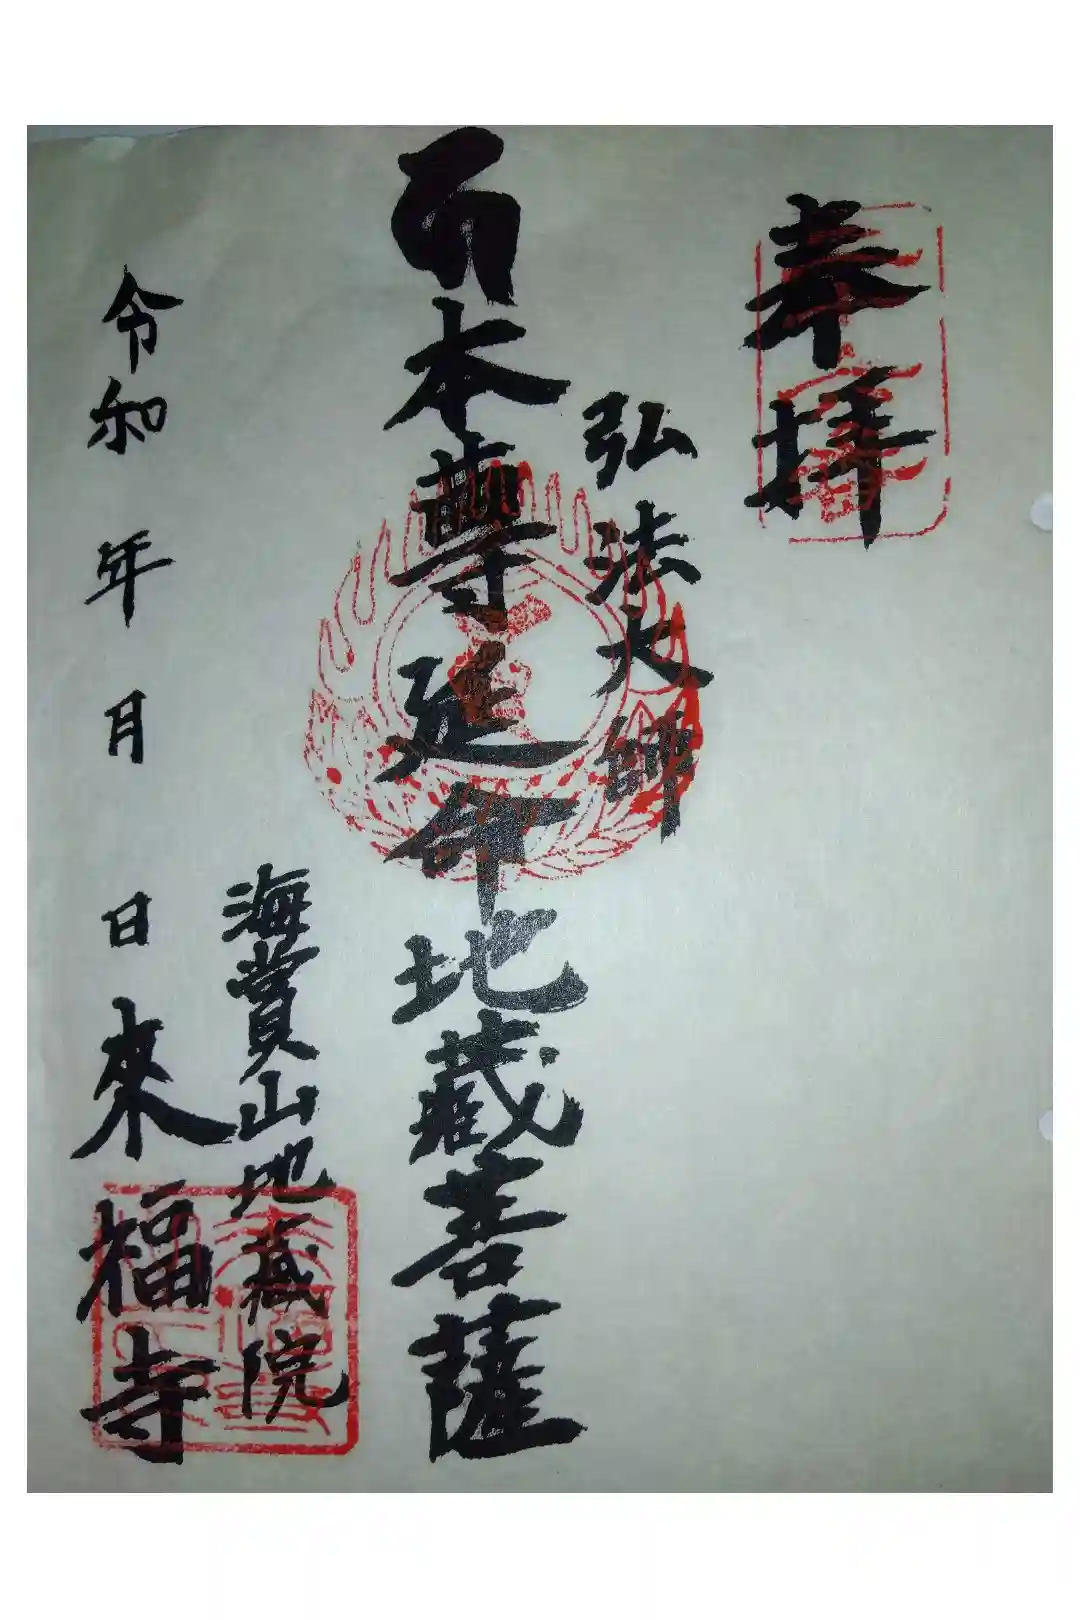 奉拝
弘法大師
御本尊延命地蔵菩薩
海賞山地蔵院
令和 年 月 日 來福寺